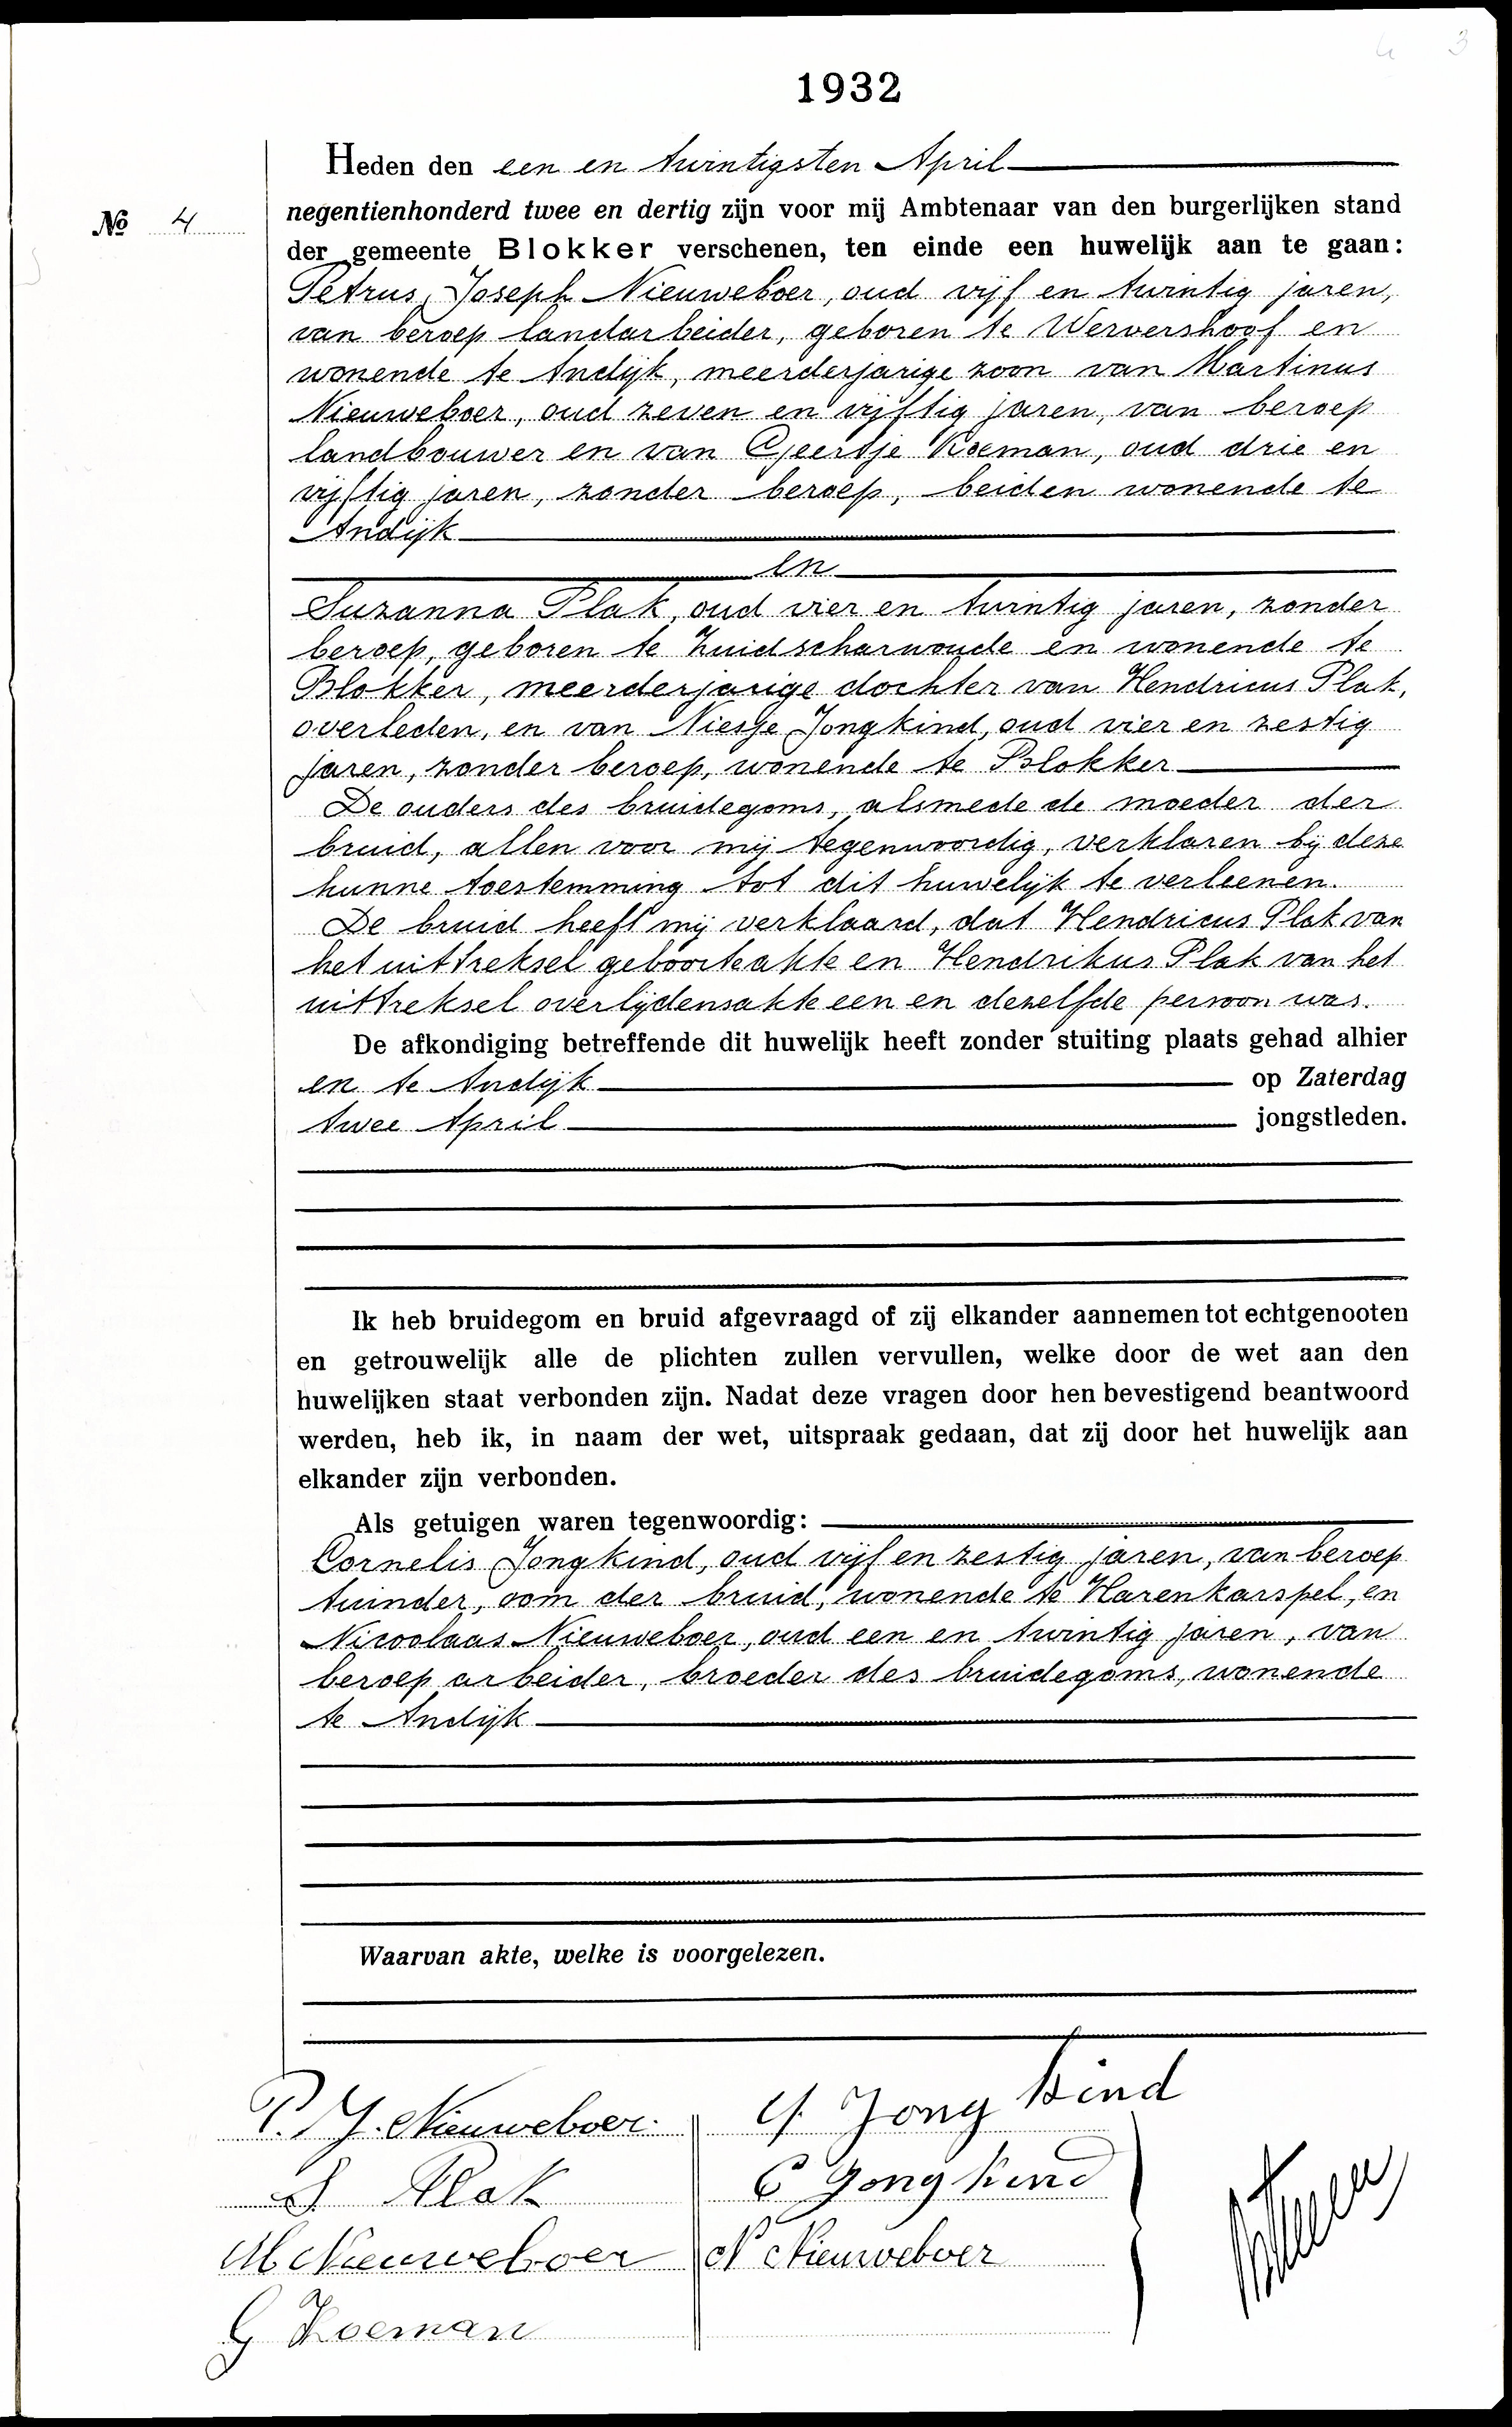 1932
Heden den een en twintigsten April
No 4
negentienhonderd twee en dertig zijn voor mij Ambtenaar van den burgerlijken stand
der gemeente Blokker verschenen, ten einde een huwelijk aan te gaan:
Petrus, Joseph Nieuweboer, oud vijf en twintig jaren,
van beroep landarbeider, geboren te Wervershoof en
wonende te Andijk, meerderjarige zoon van Martinus
Nieuweboer, oud zeven en vijftig jaren, van beroep
landbouwer en van Geertje Koeman, oud drie en
vijftig jaren, zonder beroep, beiden wonende te
Andijk
en
Suzanna Plak, oud vier en twintig jaren, zonder
beroep, geboren te Zuidscharwoude en wonende te
Blokker, meerderjarige dochter van Hendricus Plak,
overleden, en van Niesje Jongkind, oud vier en zestig
jaren, zonder beroep, wonende te Blokker
De ouders des bruidegoms, alsmede de moeder der
bruid, allen voor mij tegenwoordig, verklaren bij deze
hunne toestemming tot dit huwelijk te verleenen.
De bruid heeft mij verklaard, dat Hendricus Plak van
het uittreksel geboorteakte en Hendrikus Plak van het
uittreksel overlijdensakte een en dezelfde persoon was.
De afkondiging betreffende dit huwelijk heeft zonder stuiting plaats gehad alhier
en te Andijk op Zaterdag
twee April jongstleden.
Ik heb bruidegom en bruid afgevraagd of zij elkander aannemen tot echtgenooten
en getrouwelijk alle de plichten zullen vervullen, welke door de wet aan den
huwelijken staat verbonden zijn. Nadat deze vragen door hen bevestigend beantwoord
werden, heb ik, in naam der wet, uitspraak gedaan, dat zij door het huwelijk aan
elkander zijn verbonden.
Als getuigen waren tegenwoordig:
Cornelis Jongkind, oud vijf en zestig jaren, van beroep
tuinder, oom der bruid, wonende te Harenkarspel, en
Nicolaas Nieuweboer, oud een en twintig jaren, van
beroep arbeider, broeder des bruidegoms, wonende
te Andijk
Waarvan akte, welke is voorgelezen.
P. J. Nieuweboer.
S Plak
M Nieuweboer
G Koeman
Jong kind
C Jong kind
N Nieuweboer